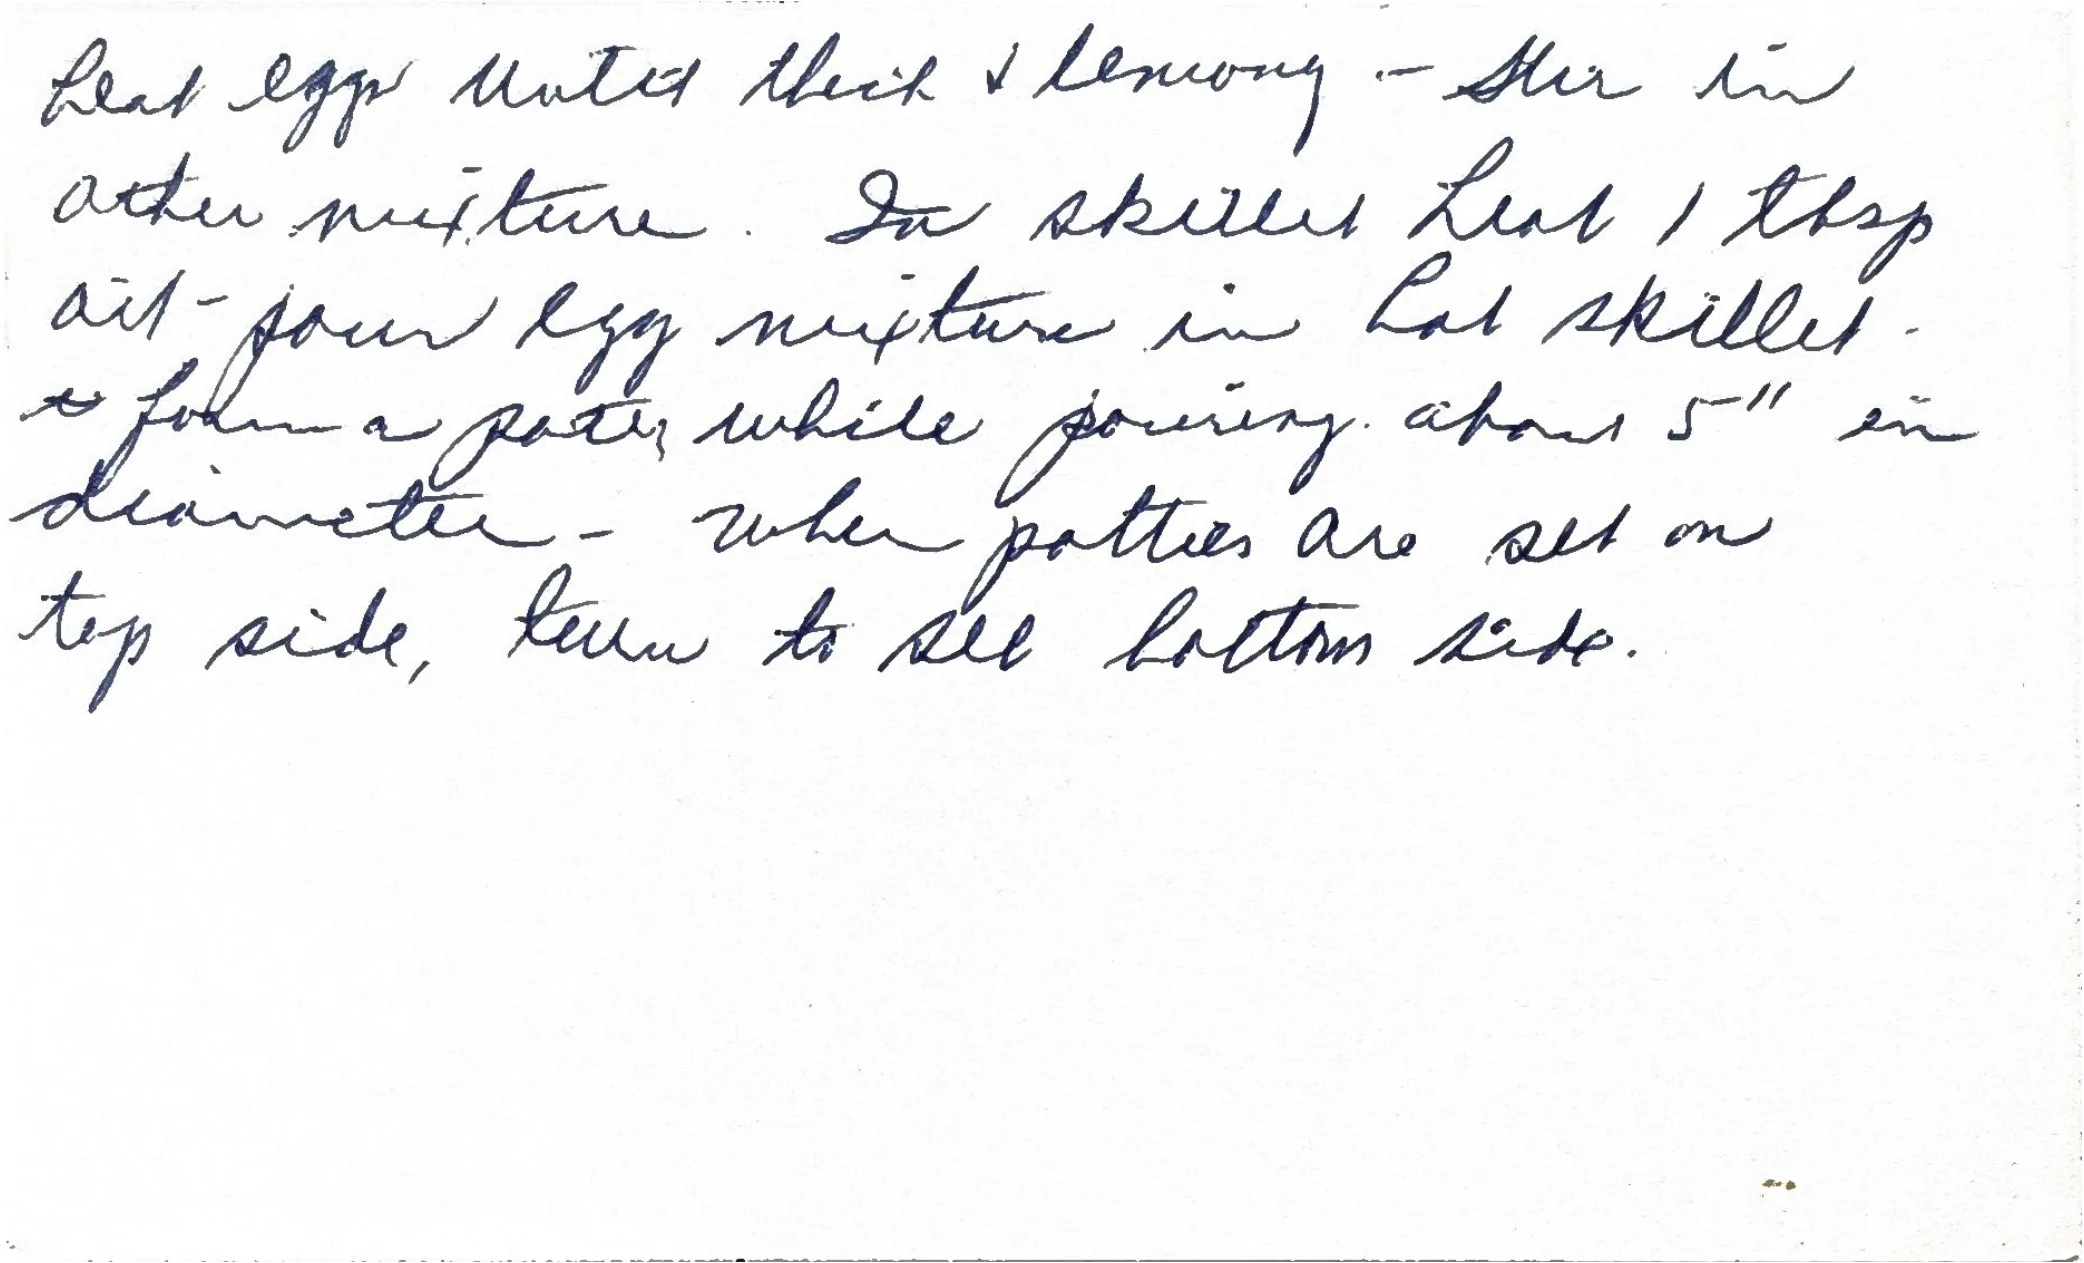 beat eggs until thick & lemony - stir in
other mixture. In skillet heat 1 tbsp
oil - pour egg mixture in hot skillet -
to form a patty while pouring. about 5" in
diameter - when patties are set on
top side, turn to set bottom side.